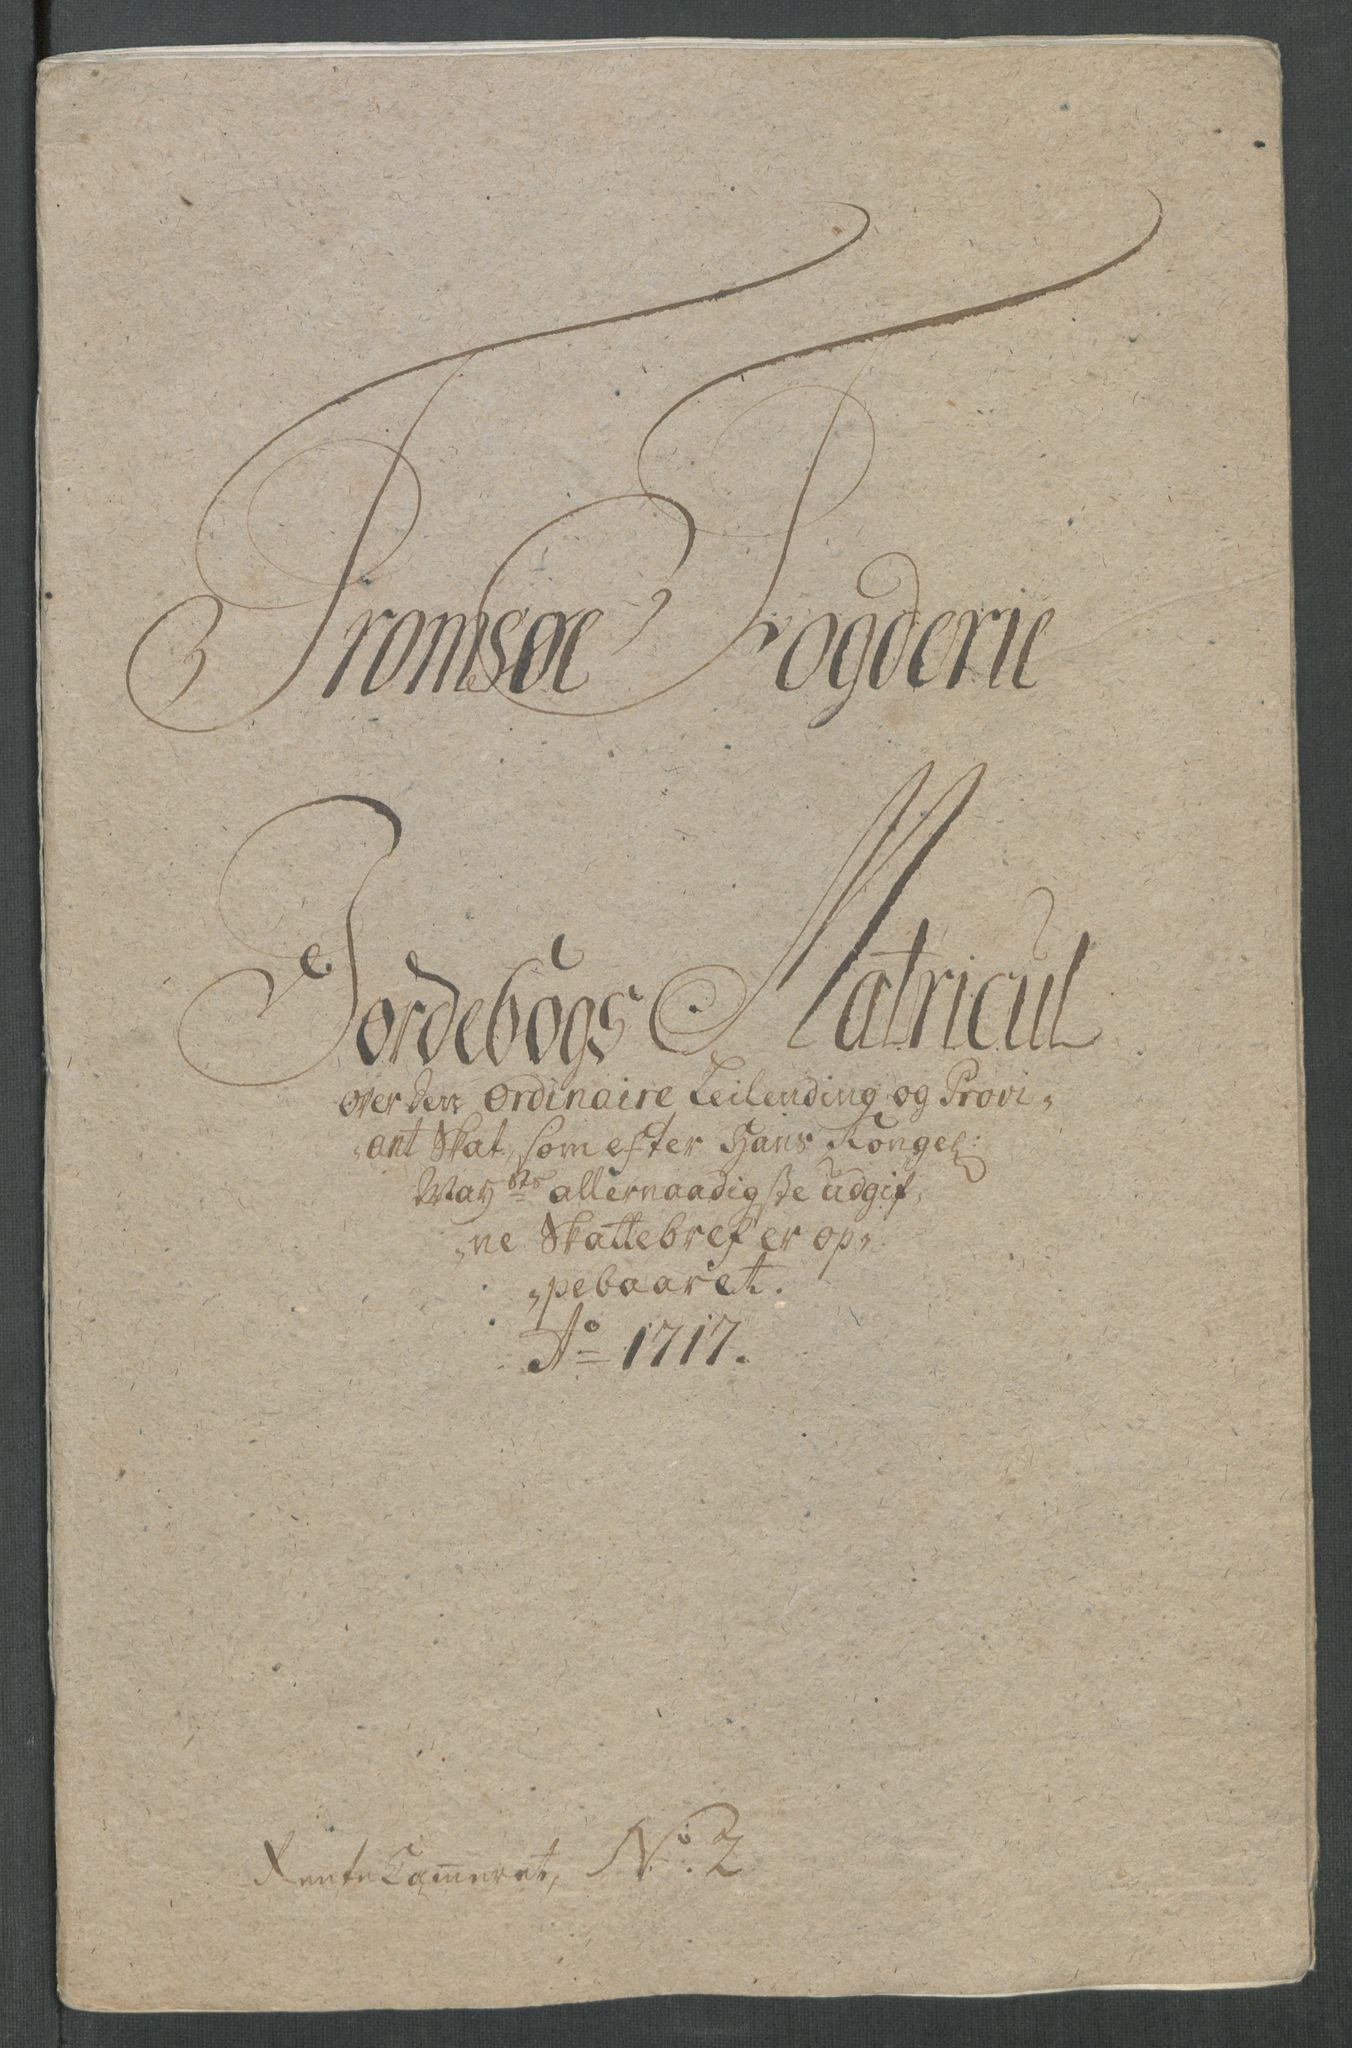 Tromsøe Fogderie
Jordebogs Matricul
over den ordinaire Leilending og Provi-
-ant Skat, som efter Hans Kongel:
May<sup>sts</sup> allernaadigste udgif-
-ne Skattebref er op-
-pebaaret.
A<sup>o</sup> 1717.
Rente Cammeret, N<sup>o</sup>. 2